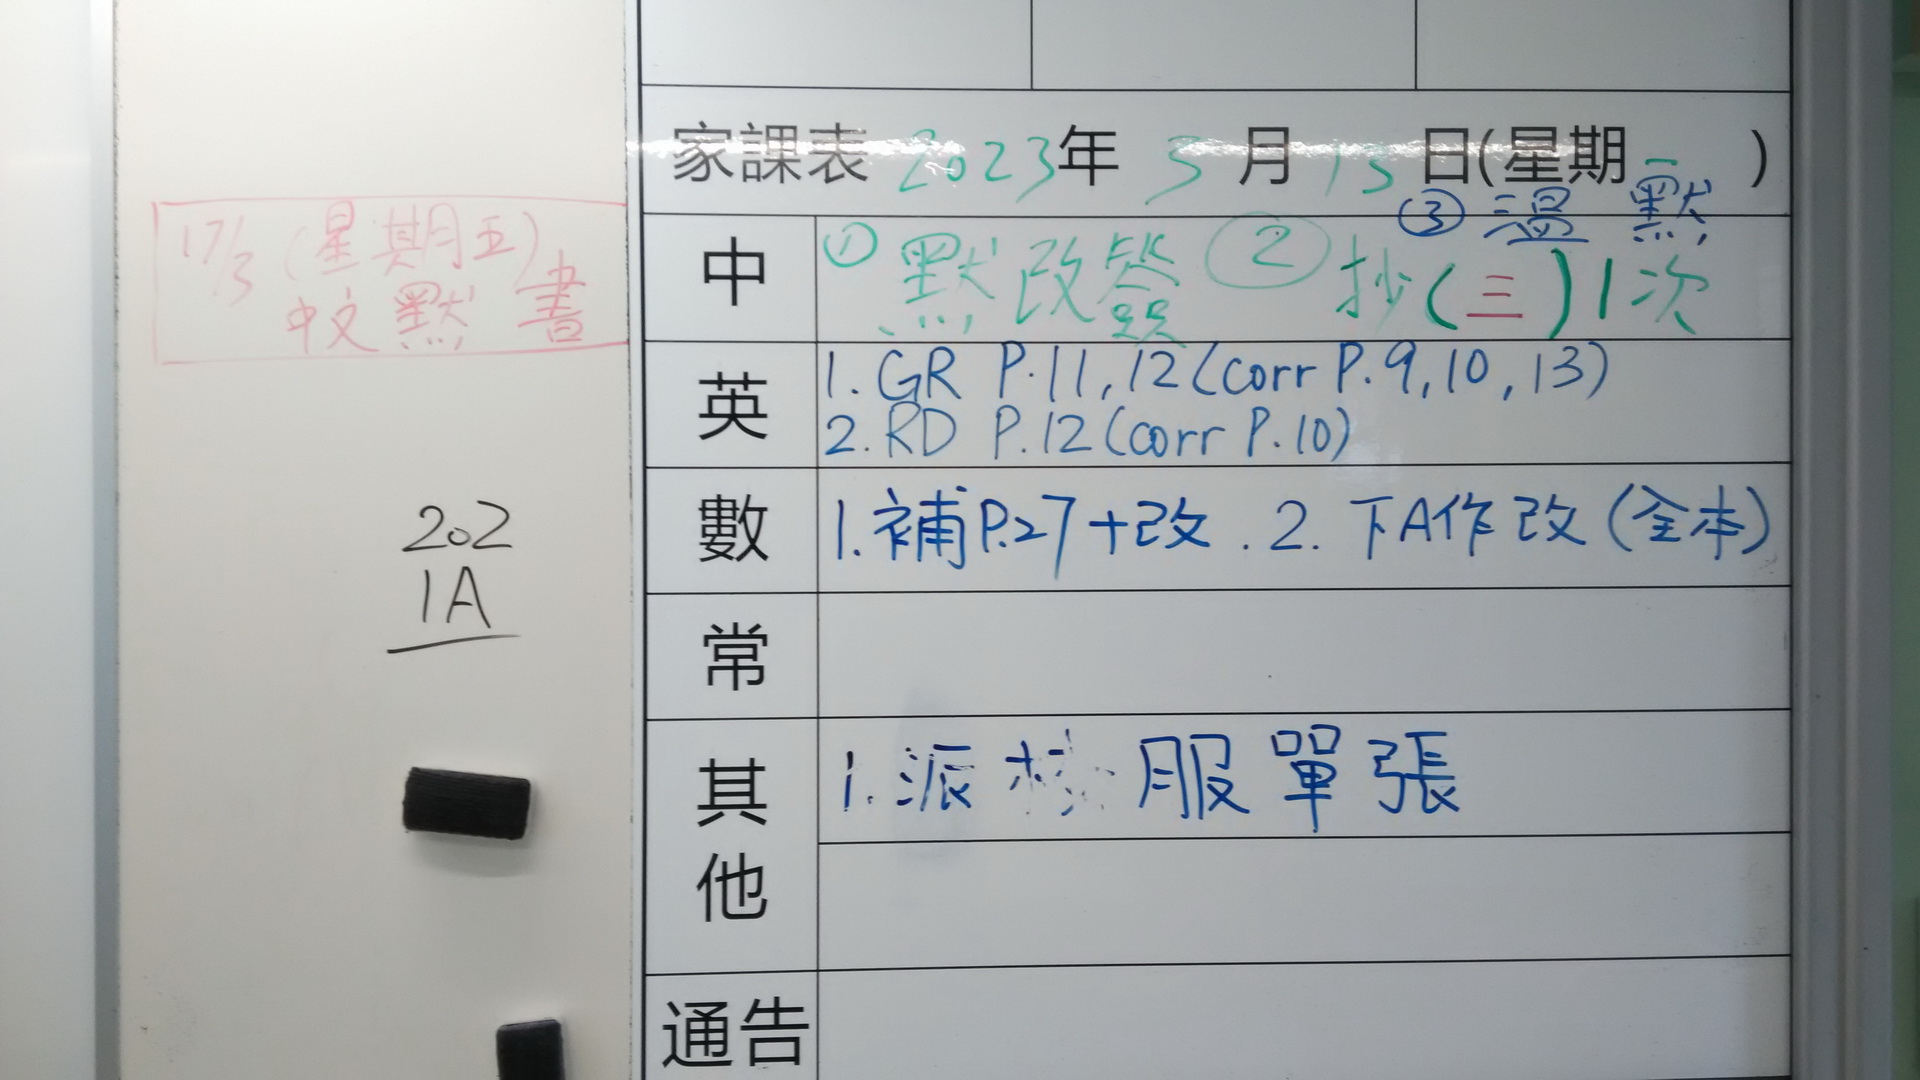 家課表 2023年 3月 13日(星期一)
17/3 (星期五)
中文默書
中 ① 默改簽 ② 抄(三)1次 ③ 溫默
英 1. GR P.11, 12 (corr P.9, 10, 13)
2. RD P.12 (corr P.10)
數 1. 補P.27+改. 2. 下A作改(全本)
202
1A
常
其他 1. 派校服單張
通告